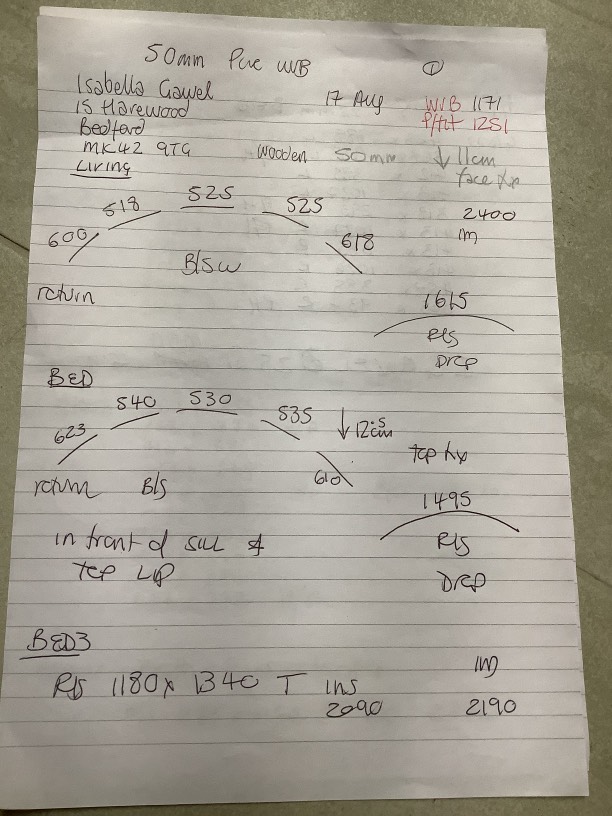 50mm Pure W/B ①
Isabella Gawel 17 Aug W/B 1171
15 Harewood P/fit 1251
Bedford
MK42 9TG Wooden 50mm ↓ 11cm
Living face fix
518 525 525 2400
600 618 M
B/SW
return 1615
R/S
Drop
BED
540 530 535 ↓ 12.5cm
623 610 top fix
return B/S 1495
in front of sill & R/S
top Lip Drop
BED3
R/S 1180 x 1340 T Ins M
2090 2190